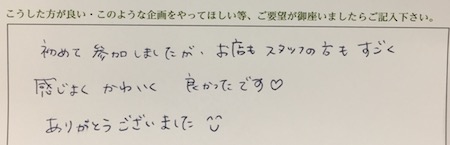 こうした方が良い・このような企画をやってほしい等、ご要望が御座いましたらご記入下さい。
初めて 参加しましたが、お店も スタッフの方も すごく
感じよく かわいく 良かったです♡
ありがとうございました